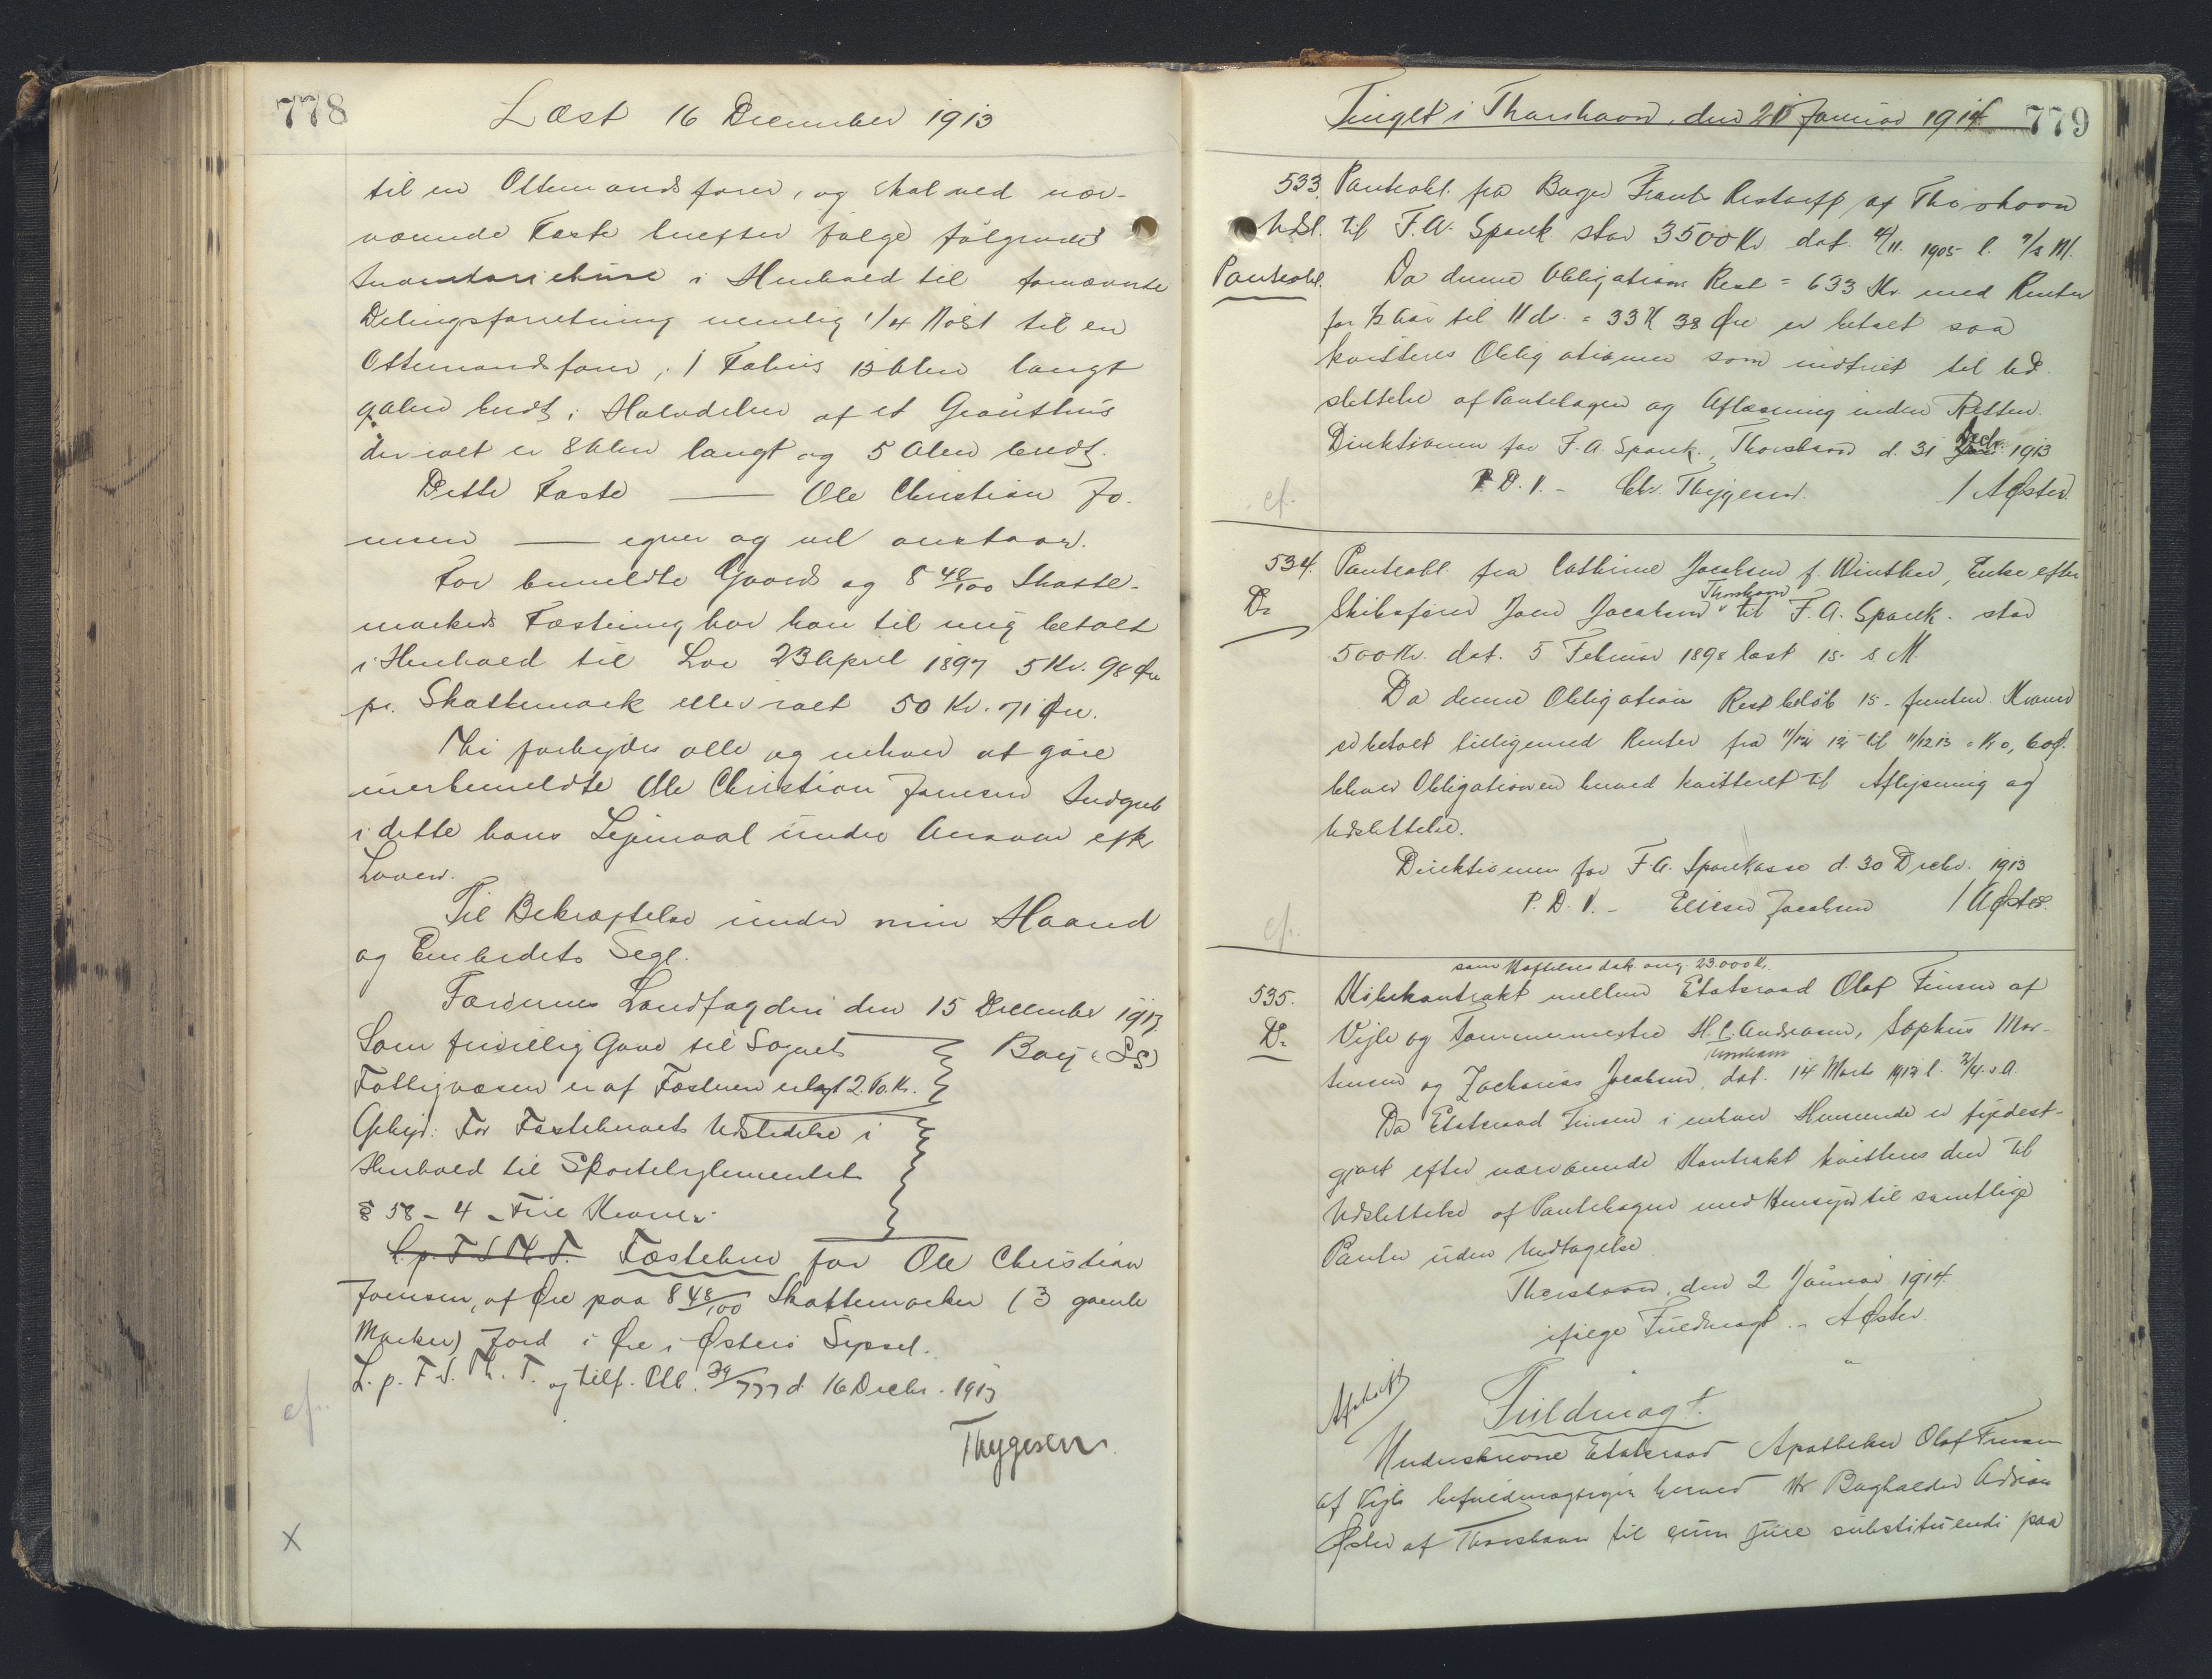 778
Læst 16 December 1913
til en Ottemandsfarer, og skal ved nær-
værende Fæste herefter følge følgende
Inventariehuse i Henhold til fornævnte
Delingsforretning nemlig 1/4 Nøst til en
Ottemandsfarer, 1 Fæhus 13 Alen langt
9 Alen bredt; Halvdelen af et Grouthus
der ialt er 8 Alen langt og 5 Alen bredt.
Dette Fæste — Ole Christian Jo-
ensen — egner og vel anstaar.
For bemeldte Gaard og 8 48/100 Skatte-
markers Fæstning har han til mig betalt
i Henhold til Lov 23 April 1897 5 Kr. 98 Øre
pr. Skattemark eller ialt 50 Kr. 71 Øre.
Thi forbydes alle og enhver at gøre
merbemeldte Ole Christian Joensen Indgreb
i dette hans Lejemaal under Ansvar efter
Loven.
Til Bekræftelse under min Haand
og Embedets Segl.
Færøernes Landfogderi den 15 December 1913
Som frivillig Gave til Sognets
Bay (LS)
Fattigvæsen er af Fæsteren erlagt 2. To. Kr.
Gebyr: For Fæstebrevets Udstedelse i
Henhold til Sportelreglementet
§ 58 - 4 - Fire Kroner
L. p. F. S. Th. T. Fæstebrev for Ole Christian
Joensen, af Øre paa 8 48/100 Skattemarker (3 gamle
Marker) Jord i Øre i Østerø Syssel.
L. p. F. S. Th. T. og tilf. Alb. 39/777 d. 16 Decbr. 1913
cf.
Thygesen
X
Tinget i Thorshavn, den 21 Januar 1914
779
533. Panteobl. fra Bager Frants Restorff af Thorshavn
Udsl. til F.A. Spark stor 3500 Kr dat. 4/11 1905 l. 7/s M.
Panteobl. Da denne Obligations Rest = 633 Kr. med Renter
for 1/2 Aar til 11 ds. = 33 K 38 Øre er betalt saa
kvitteres Obligationen som indfriet til Ud-
slettelse af Pantebogen og Aflæsning inden Retten.
Direktionen for F.A. Spark., Thorshavn d. 31 Decbr. 1913
P. D. V. - Chr. Thygesen / A Øster
cf.
534. Panteobl. fra Cathrine Jacobsen f. Winther, Enke efter
Do Skibsfører Joen Jacobsen Thorshavn til F.A. Spark. stor
500 Kr. dat. 5 Februar 1898 læst 15. s M.
Da denne Obligations Restbeløb 15 - femten Kroner
er betalt tilligemed Renter fra 11/12 12 til 11/12 13 = Kr 0, 60 Ø.
bliver Obligationen herved kvitteret til Aflysning og
Udslettelse.
Direktionen for F.A. Sparekasse d. 30 Decbr. 1913
P. D. V. - Elieser Jacobsen / A Øster.
cf.
som Hæftelsesdok. ang. 23.000 Kr.
535. Købekontrakt mellem Etatsraad Olaf Finsen af
Do Vejle og Tømmermestre H. C. Andreasen, Sophus Mor-
tensen og Zacharias Jacobsen, Thorshavn dat. 14 Marts 1912 l. 3/4. s A.
Da Etatsraad Finsen i enhver Henseende er fyldest-
gjort efter nærværende Kontrakt kvitteres den til
Udslettelse af Pantebogen med Hensyn til samtlige
Panter uden Undtagelse
Thorshavn, den 2 Januar 1914
ifølge Fuldmagt. - A Øster
Afskrift
Fuldmagt.
Underskrevne Etatsraad Apotheker Olaf Finsen
af Vejle befuldmægtiger herved Hr Bogholder Adrian
Øster af Thorshavn til cum jure substituendi paa